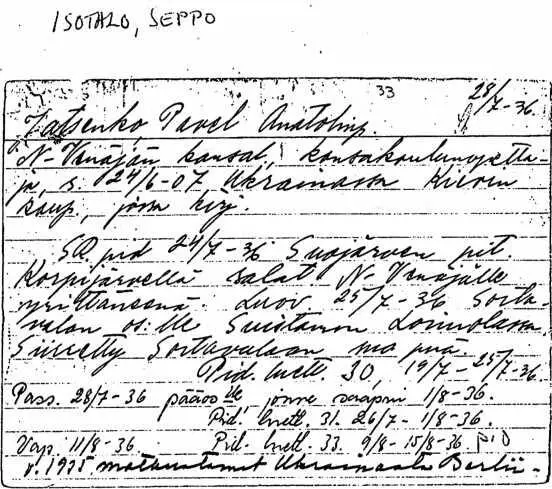 ISOTALO, SEPPO
33
28/7-36.
Jatsenko, Pavel Anatolinp.
N-Venäjän kansal., kansakoulunopetta-
ja, s. 24/6-07 Ukrainassa Kievin
kaup., jossa kirj.
SR. pid 24/7-36 Suojärven pit.
Korpijärvellä salat N-Venäjälle
yrittäneenä. Luov 25/7-36 Sorta-
valan os:lle Suistamon Loimolassa,
Siirretty Sortavalaan ma pnä.
Pid. luett. 30, 19/7-25/7-36.
Pass. 28/7-36 pääos:lle, jonne saapui 1/8-36.
Pid. luett. 31. 26/7-1/8-36.
Vap 11/8-36. Pid. luett. 33. 9/8-15/8-36
v. 1935 matkustanut Ukrainasta Berlii-